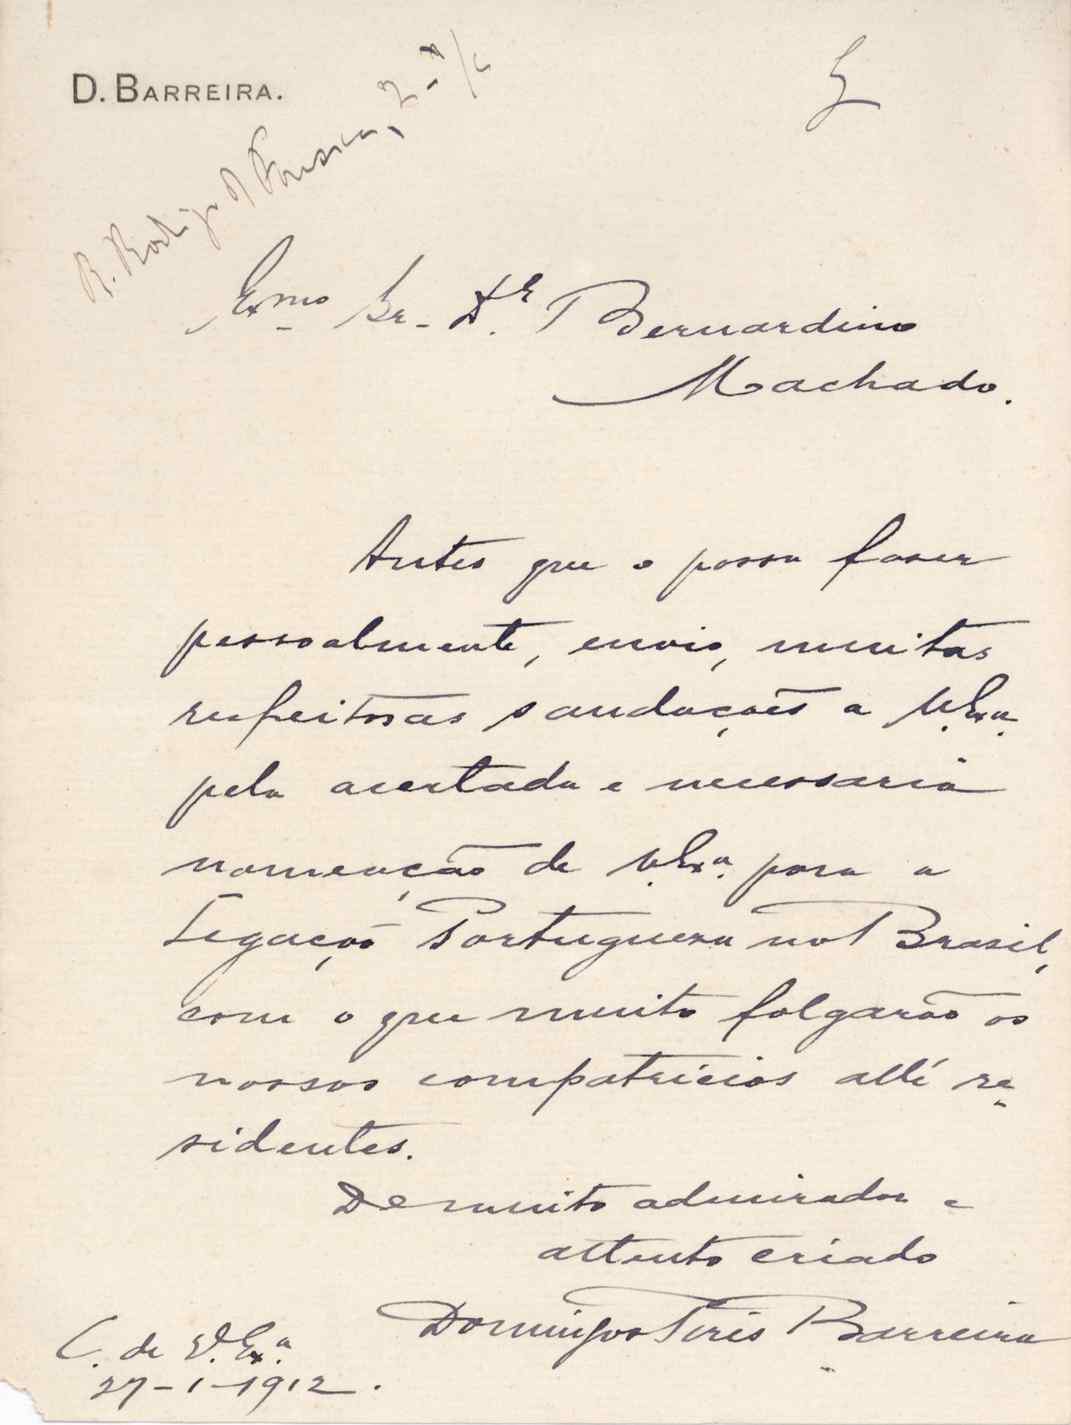 D. BARREIRA.
R. Rodrigo d Fonseca, 2-
Exmo Sr. Dr. Bernardino
Machado.
Antes que o possa faser
pessoalmente, envio, muitas
respeitosas saudações a V. Exa.
pela acertada e necessaria
nomeação de V. Exa. para a
Legação Portuguesa no Brasil,
com o que muito folgarão os
nossos compatricios alli re-
sidentes.
De muito admirador e
attento criado
Domingos Barreira
C. de V. Exa.
27-1-1912.